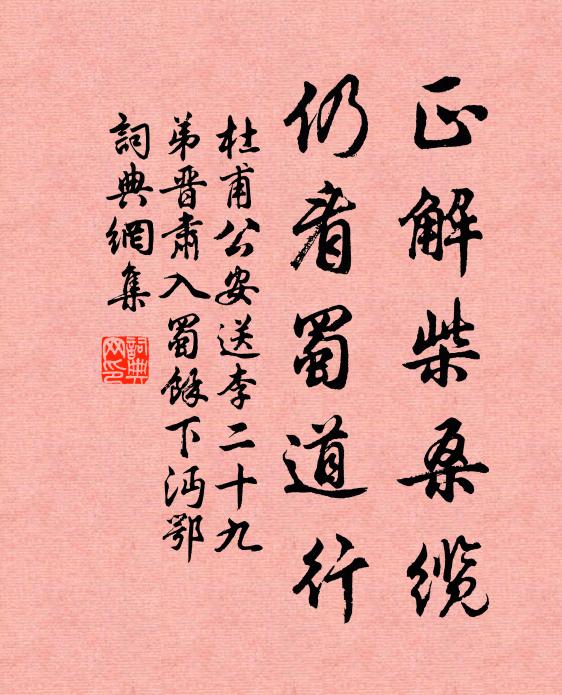 正解柴桑缆
仍看蜀道行
杜甫公安送李二十九
弟晋肅入蜀餘下沔鄂
詞典網集
詞典网印